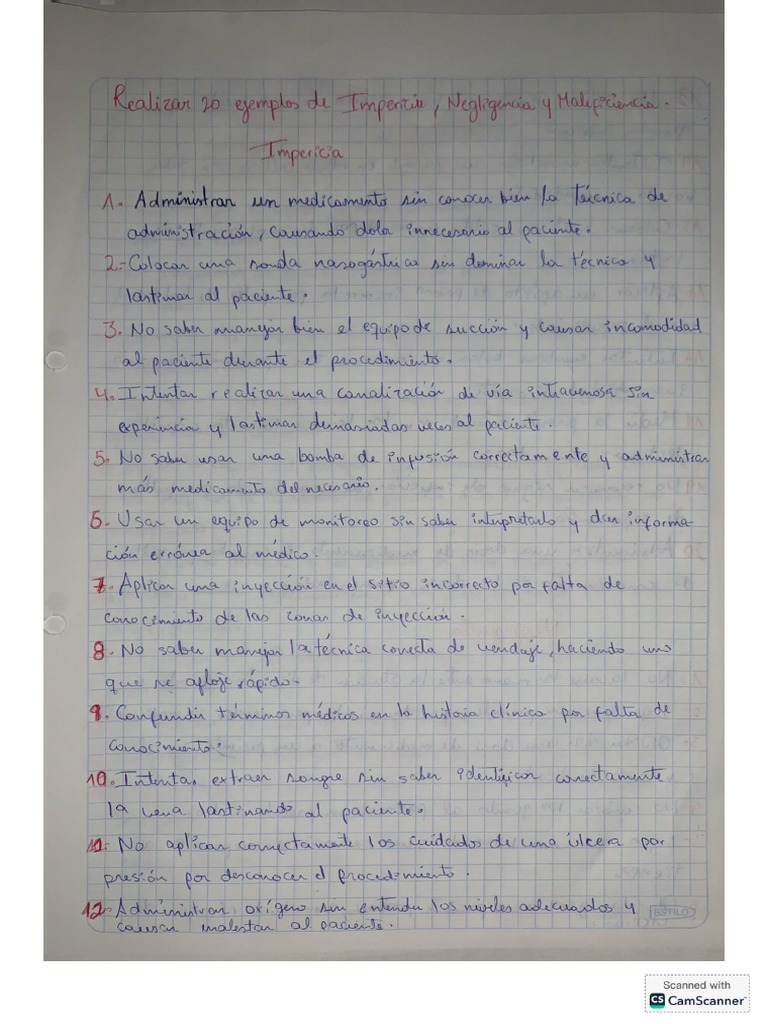 Realizar 20 ejemplos de Impericia, Negligencia y Maleficiencia.
Impericia
1. Administrar un medicamento sin conocer bien la técnica de
administración, causando dolor innecesario al paciente.
2.- Colocar una sonda nasogástrica sin dominar la técnica y
lastimar al paciente.
3. No saber manejar bien el equipo de succión y causar incomodidad
al paciente durante el procedimiento.
4. Intentar realizar una canalización de vía intravenosa sin
experiencia y lastimar demasiadas veces al paciente.
5. No saber usar una bomba de infusión correctamente y administrar
más medicamento del necesario.
6. Usar un equipo de monitoreo sin saber interpretarlo y dar informa-
ción errónea al médico.
7. Aplicar una inyección en el sitio incorrecto por falta de
conocimiento de las zonas de inyección.
8. No saber manejar la técnica correcta de vendaje, haciendo uno
que se afloje rápido.
9. Confundir términos médicos en la historia clínica por falta de
conocimiento.
10. Intentar extraer sangre sin saber identificar correctamente
la vena lastimando al paciente.
11. No aplicar correctamente los cuidados de una úlcera por
presión por desconocer el procedimiento.
12. Administrar oxígeno sin entender los niveles adecuados y
causar malestar al paciente.
ESTILO
Scanned with
CS CamScanner